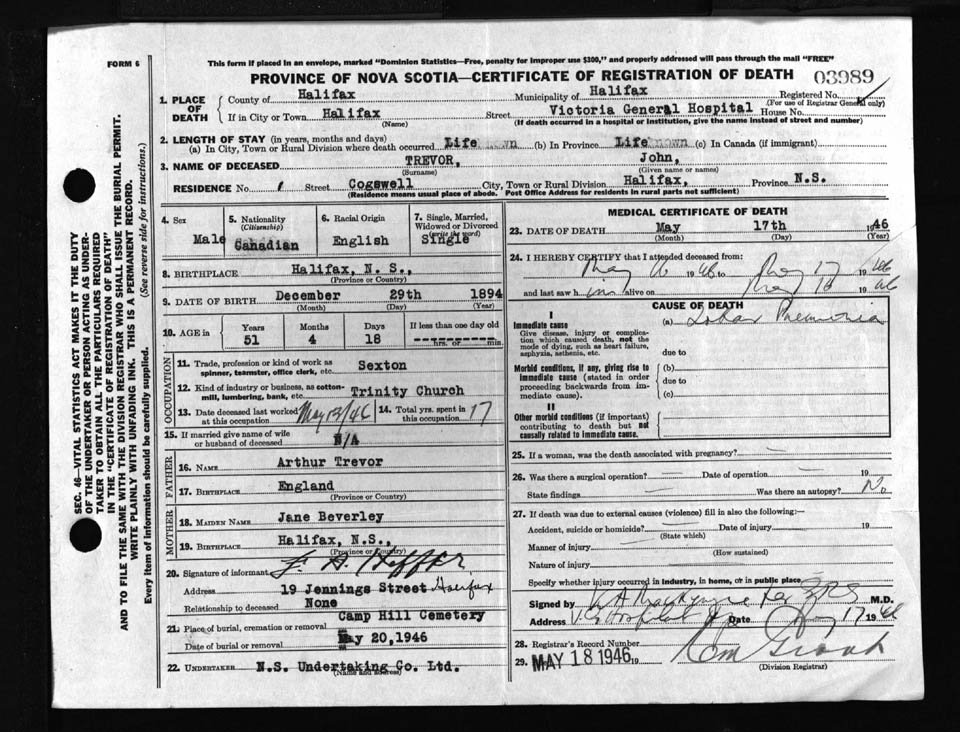 FORM 6
This form if placed in an envelope, marked "Dominion Statistics—Free, penalty for improper use $300," and properly addressed will pass through the mail "FREE"
PROVINCE OF NOVA SCOTIA—CERTIFICATE OF REGISTRATION OF DEATH 03989
1. PLACE OF DEATH
County of Halifax Municipality of Halifax Registered No.
(For use of Registrar General only)
If in City or Town Halifax Street Victoria General Hospital House No.
(Name) (If death occurred in a hospital or institution, give the name instead of street and number)
2. LENGTH OF STAY (in years, months and days)
(a) In City, Town or Rural Division where death occurred Life (b) In Province Life (c) In Canada (if immigrant)
3. NAME OF DECEASED TREVOR, John,
(Surname) (Given name or names)
RESIDENCE No. 1 Street Cogswell City, Town or Rural Division Halifax, Province N.S.
(Residence means usual place of abode. Post Office Address for residents in rural parts not sufficient)
4. Sex Male
5. Nationality (Citizenship) Canadian
6. Racial Origin English
7. Single, Married, Widowed or Divorced (write the word) Single
8. BIRTHPLACE Halifax, N. S.,
(Province or Country)
9. DATE OF BIRTH December 29th 1894
(Month) (Day) (Year)
10. AGE in Years Months Days If less than one day old
51 4 18 hrs. or min.
OCCUPATION
11. Trade, profession or kind of work as spinner, teamster, office clerk, etc. Sexton
12. Kind of industry or business, as cotton-mill, lumbering, bank, etc. Trinity Church
13. Date deceased last worked at this occupation May 13/46 14. Total yrs. spent in this occupation 17
15. If married give name of wife or husband of deceased N/A
FATHER
16. NAME Arthur Trevor
17. BIRTHPLACE England
(Province or Country)
MOTHER
18. MAIDEN NAME Jane Beverley
19. BIRTHPLACE Halifax, N.S.,
(Province or Country)
20. Signature of informant
Address 19 Jennings Street Halifax
Relationship to deceased None
21. Place of burial, cremation or removal Camp Hill Cemetery
Date of burial or removal May 20, 1946
22. UNDERTAKER N.S. Undertaking Co. Ltd.
(Name and address)
MEDICAL CERTIFICATE OF DEATH
23. DATE OF DEATH May 17th 1946
(Month) (Day) (Year)
24. I HEREBY CERTIFY that I attended deceased from:
May 1946 to May 17 1946
and last saw him alive on May 1946
CAUSE OF DEATH
I
Immediate cause (a) Lobar Pneumonia
Give disease, injury or complication which caused death, not the mode of dying, such as heart failure, asphyxia, asthenia, etc.
due to
Morbid conditions, if any, giving rise to immediate cause (stated in order proceeding backwards from immediate cause).
(b)
due to
(c)
II
Other morbid conditions (if important) contributing to death but not causally related to immediate cause.
25. If a woman, was the death associated with pregnancy? —
26. Was there a surgical operation? — Date of operation — 19
State findings — Was there an autopsy? No
27. If death was due to external causes (violence) fill in also the following:—
Accident, suicide or homicide? — Date of injury — 19
(State which)
Manner of injury —
(How sustained)
Nature of injury
Specify whether injury occurred in industry, in home, or in public place
Signed by M.D.
Address V. G. Hospital Date May 17 1946
28. Registrar's Record Number
29. MAY 18 1946 19
(Division Registrar)
SEC. 46—VITAL STATISTICS ACT MAKES IT THE DUTY
OF THE UNDERTAKER OR PERSON ACTING AS UNDER-
TAKER TO OBTAIN ALL THE PARTICULARS REQUIRED
IN THE "CERTIFICATE OF REGISTRATION OF DEATH"
AND TO FILE THE SAME WITH THE DIVISION REGISTRAR WHO SHALL ISSUE THE BURIAL PERMIT.
WRITE PLAINLY WITH UNFADING INK. THIS IS A PERMANENT RECORD.
Every item of information should be carefully supplied. (See reverse side for instructions.)